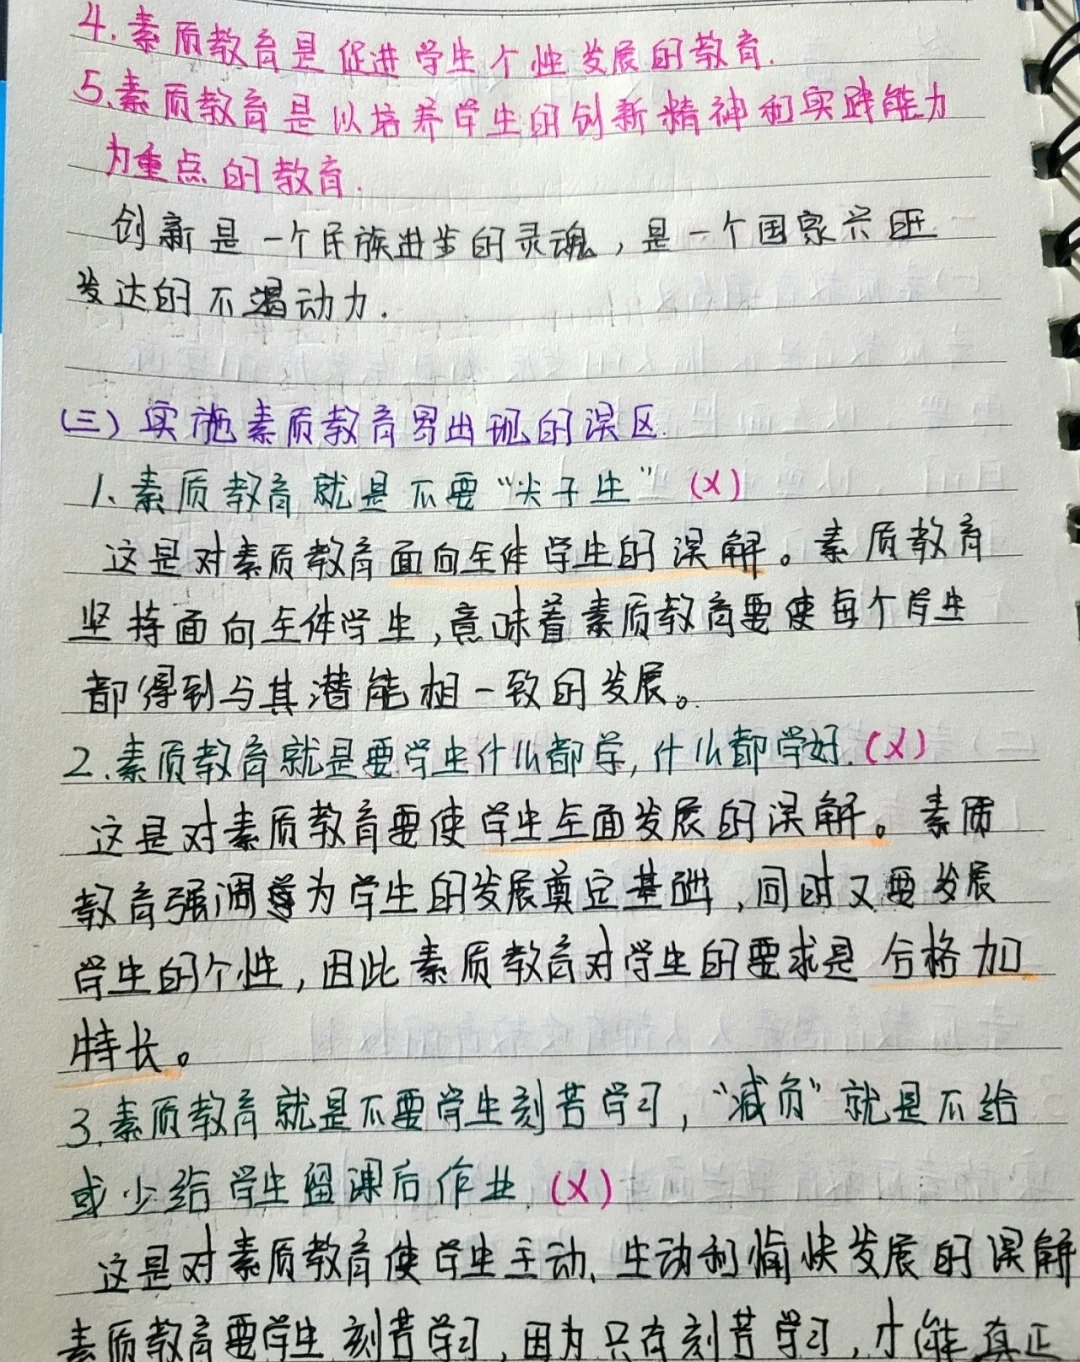 4.素质教育是促进学生个性发展的教育.
5.素质教育是以培养学生的创新精神和实践能力
为重点的教育.
创新是一个民族进步的灵魂,是一个国家兴旺
发达的不竭动力.
(三)实施素质教育易出现的误区.
1、素质教育就是不要“尖子生”(X)
这是对素质教育面向全体学生的误解。素质教育
坚持面向全体学生,意味着素质教育要使每个学生
都得到与其潜能相一致的发展。
2.素质教育就是要学生什么都学,什么都学好.(X)
这是对素质教育要使学生全面发展的误解。素质
教育强调为学生的发展奠定基础,同时又要发展
学生的个性,因此素质教育对学生的要求是合格加
特长。
3.素质教育就是不要学生刻苦学习,“减负”就是不给
或少给学生留课后作业.(X)
这是对素质教育使学生主动、生动和愉快发展的误解
素质教育要学生刻苦学习,因为只有刻苦学习,才能真正